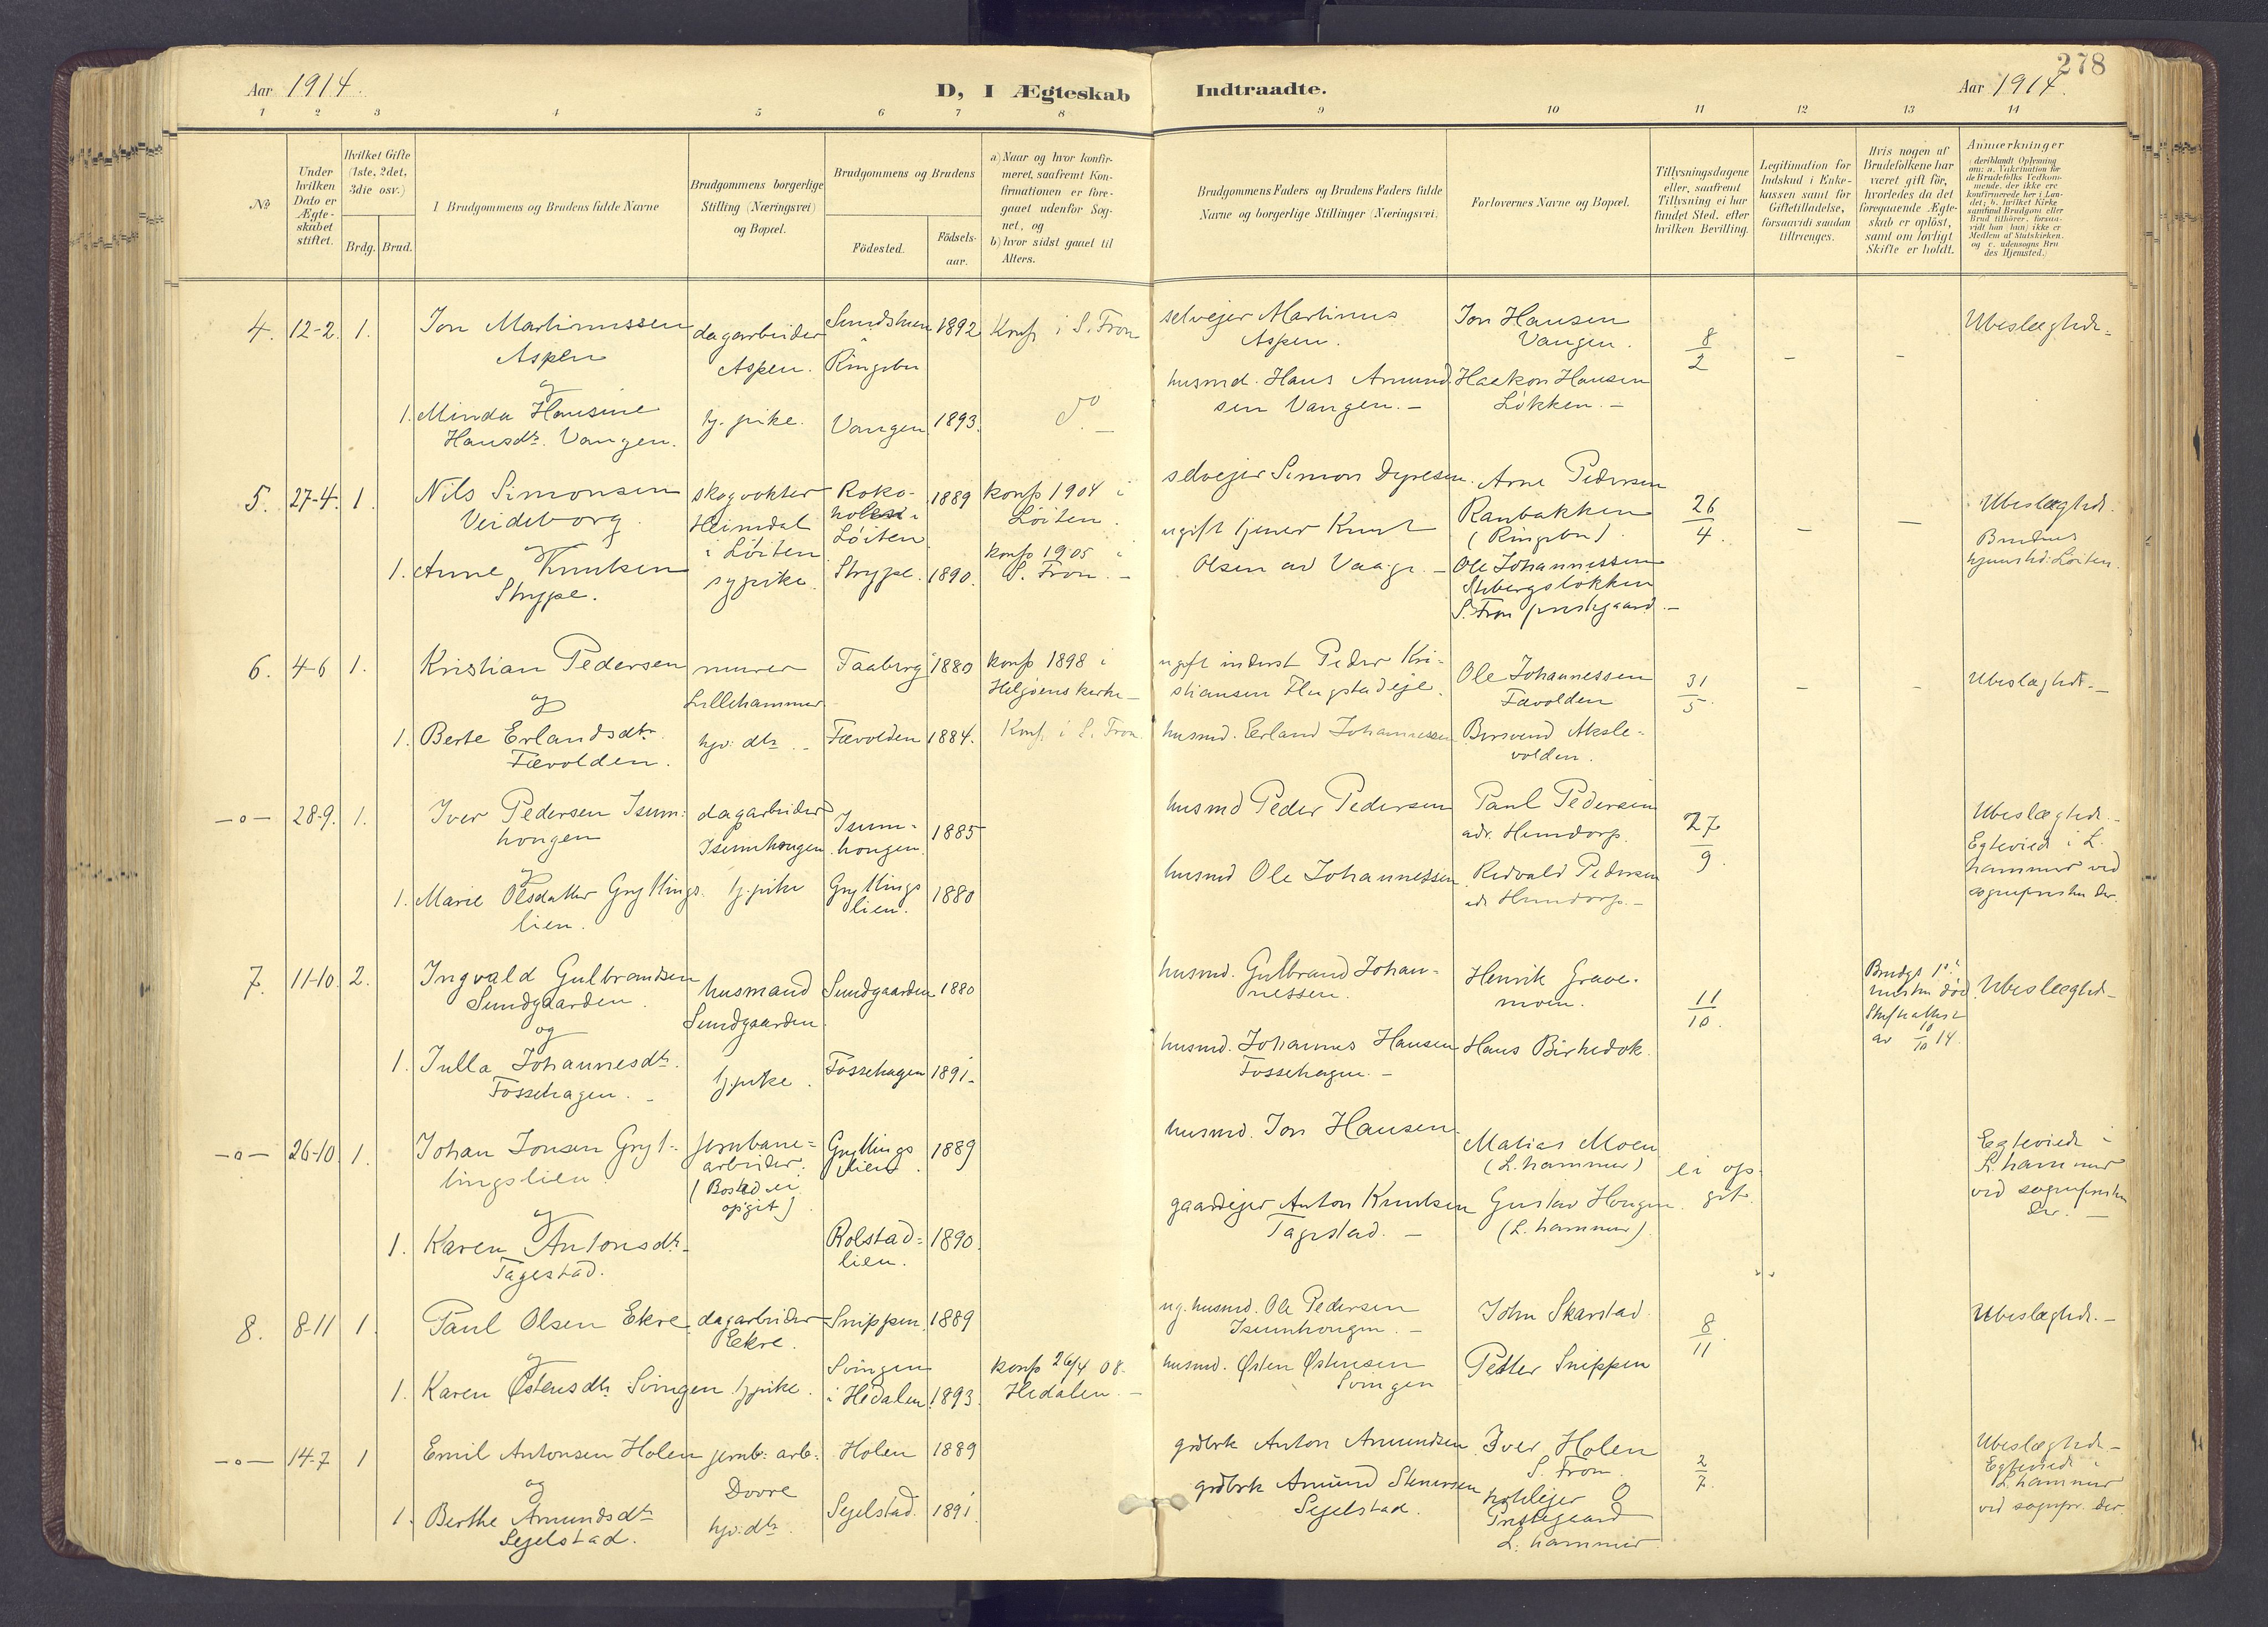 278
Aar 1914.
D, I Ægteskab Indtraadte.
Aar 1914.
1 2 3 4 5 6 7 8 9 10 11 12 13 14
№
Under hvilken Dato er Ægteskabet stiftet.
Hvilket Gifte (1ste, 2det, 3die osv.)
Brdg. Brud.
Brudgommens og Brudens fulde Navne
Brudgommens borgerlige Stilling (Næringsvei) og Bopæl.
Brudgommens og Brudens
Födested.
Födsels-aar.
a) Naar og hvor konfirmeret, saafremt Konfirmationen er foregaaet udenfor Sognet, og
b) hvor sidst gaaet til Alters.
Brudgommens Faders og Brudens Faders fulde Navne og borgerlige Stillinger (Næringsvei).
Forlovernes Navne og Bopæl.
Tillysningsdagene eller, saafremt Tillysning ei har fundet Sted, efter hvilken Bevilling.
Legitimation for Indskud i Enkekassen samt for Giftetilladelse, forsaavidt saadan tiltrænges.
Hvis nogen af Brudefolkene har været gift för, hvorledes da det foregaaende Ægteskab er oplöst, samt om lovligt Skifte er holdt.
Anmærkninger
4. 12-2. 1.
Jon Martinussen
Aspen
og
dagarbeider
Aspen.
Ringebu
1892
Konf i S. Fron
selvejer Martinus
Aspen.
Jon Hansen
Vangen.
8
2
Ubeslegtede
1. Minda Hansine
Hansdtr. Vangen.
tj. pike.
Vangen
1893.
do
husmd. Hans Amund
sen Vangen.
Haakon Hansen
Løkken.
5. 27-4. 1.
Nils Simonsen
Veideborg.
og
skogvokter
Heimdal
i Løiten
Løiten
1889
konf 1904 i
Løiten.
selvejer Simon Dyresen.
Arne Pedersen
Ranbakken
(Ringebu)
26
4.
Ubeslægtede.
Brudens
hjemsted: Løiten.
1. Anne Knutsen
Strype.
sypike
Strype.
1890.
konf 1905 i
S. Fron.
ugift tjener Knut
Olsen av Vaage.
Ole Johannessen
S. Fron prestegaard.
6. 4-6 1.
Kristian Pedersen
og
murer
Lillehammer.
Faaberg
1880
konf 1898 i
Helgøens kirke
ugift inderst Peder Kri-
stiansen Flugstadeje.
Ole Johannessen
Fævolden
31
5.
Ubeslægtede.
1. Berte Erlandsdtr.
Fævolden.
hjv: dtr.
Fævolden
1884.
Konf i S. Fron.
husmd. Erland Johannessen
volden.
-o- 28-9. 1.
Iver Pedersen Isum-
hongen
og
dagarbeider
Isumhougen.
Isum-
hougen.
1885
husmd Peder Pedersen
Paul Pedersen
adr. Hundorp.
27
9.
Ubeslægtede.
Egteviede i L.
hammer ved
sognepresten der.
1. Marie Olsdatter Gryttings
lien.
tj.pike
Gryttings
lien.
1880
husmd Ole Johannessen
Redvald Pedersen
adr Hundorp.
7. 11-10 2.
Ingvald Gulbrandsen
Sundgaarden.
og
husmand
Sundgaarden.
Sundgaarden
1880
husmd. Gulbrand Johan-
nessen.
Henrik Grave-
moen.
11
10.
Brudgs 1ste
hustru død
Skifteattest
av 10/10 14.
Ubeslegtede
1. Julla Johannesdtr.
Fossehagen.
tj.pike.
Fossehagen
1891.
husmd. Johannes Hansen
Fossehagen.
Hans Birkedok.
-o- 26-10. 1.
Johan Jonsen Gryt-
tingslien.
og
Jernbane-
arbeider.
(Bosted ei
opgit)
Gryttings
lien.
1889
husmd. Jon Hansen
Matias Moen
(L. hammer)
ei op-
git.
Egteviede i
L. hammer
ved sognepresten
der.
1. Karen Antonsdtr.
Tagestad.
Rolstad-
lien.
1890.
gaardejer Anton Knutsen
Tagestad.
Gustav Hougen.
(L. hammer)
8. 8-11 1.
Paul Olsen Ekre
og
dagarbeider
Ekre.
Snippen.
1889
ug. husmd. Ole Pedersen
Isumhougen.
John Skarstad.
8
11.
Ubeslægtede.
1. Karen Østensdtr. Svingen
tj.pike.
Svingen
i Hedalen.
1893.
konf 26/4 08.
Hedalen.
husmd. Østen Østensen
Svingen
Petter Snippen
-o- 14-7 1
Emil Antonsen Holen
og
jernb: arb:
Dovre
Holen
1889
grdbrk Anton Amundsen
Iver Holen
S. Fron.
2
7.
Ubeslægtede
Egteviede i
L. hammer
ved sognepr. der.
1. Berthe Amundsdtr
Segelstad.
hjv: dtr.
Segelstad.
1891.
grdbrk Amund Stenersen
Segelstad.
hotelejer O
Prestegaard
L. hammer